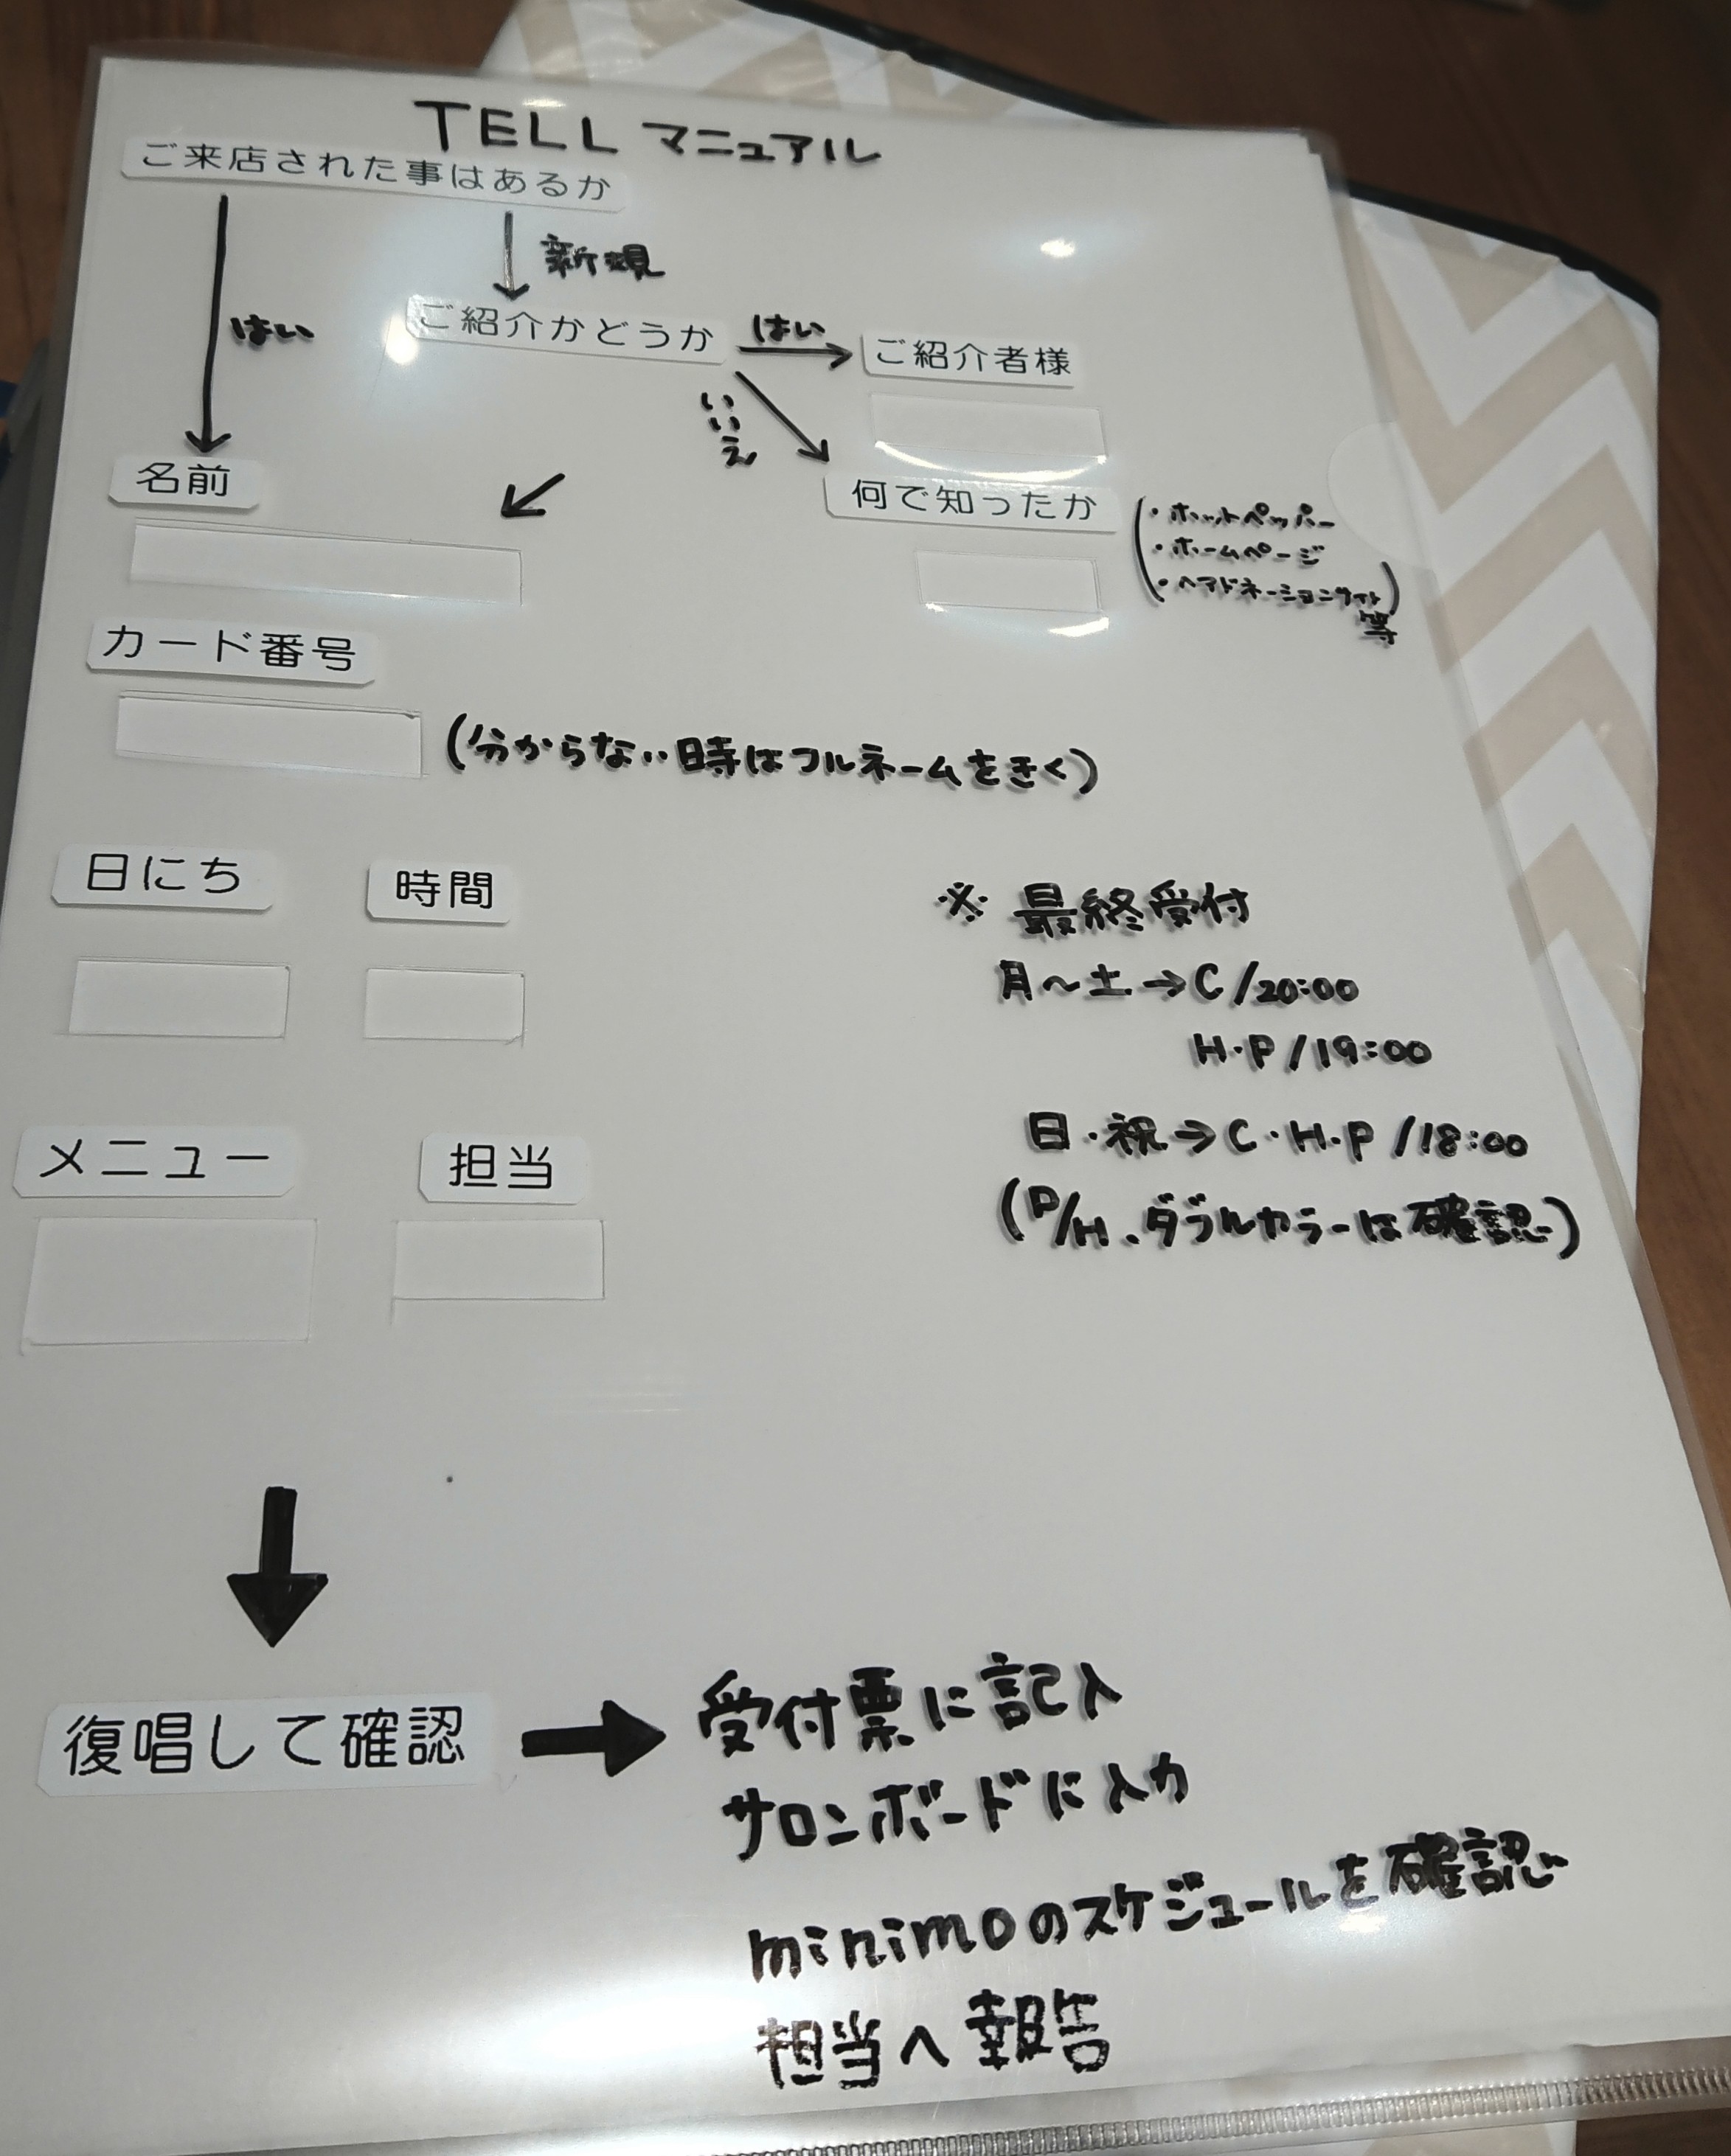 TELL マニュアル
ご来店された事はあるか
新規
はい
ご紹介かどうか
はい
ご紹介者様
いいえ
名前
何で知ったか
(・ホットペッパー
・ホームページ
・ヘアドネーションサイト)
等
カード番号
(分からない時はフルネームをきく)
日にち
時間
※ 最終受付
月〜土→C/20:00
H・P/19:00
日・祝→C・H・P/18:00
(P/H、ダブルカラーは確認)
メニュー
担当
復唱して確認
受付票に記入
サロンボードに入力
minimoのスケジュールを確認
担当へ報告